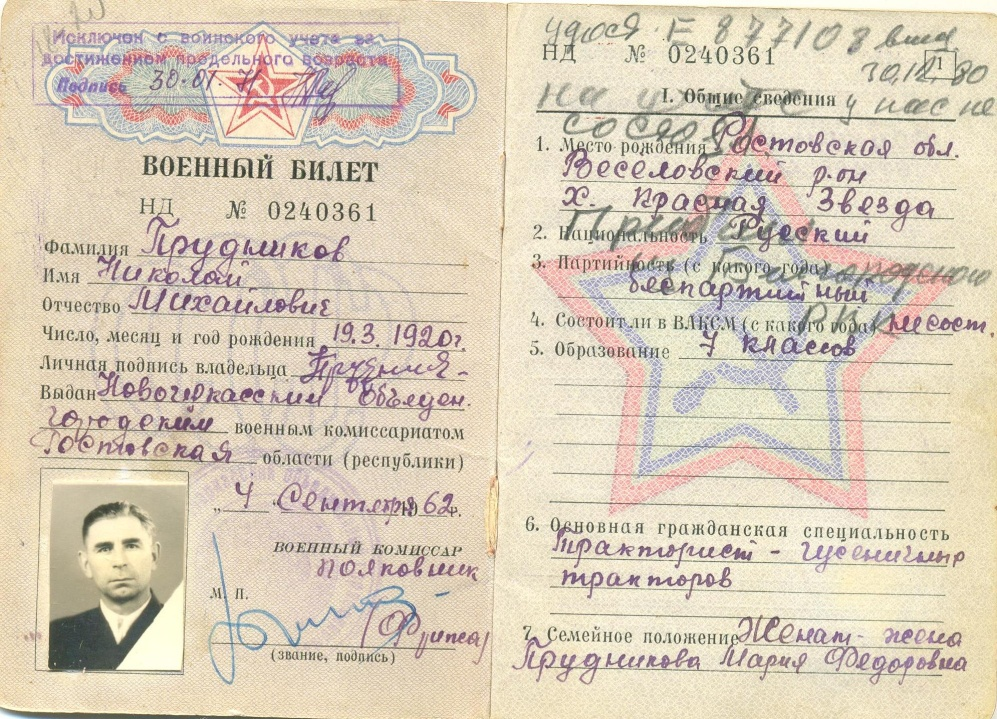 Исключен с воинского учета за
достижением предельного возраста
Подпись 30.01.71
ВОЕННЫЙ БИЛЕТ
НД № 0240361
Фамилия Прудников
Имя Николай
Отчество Михайлович
Число, месяц и год рождения 19.3.1920г.
Личная подпись владельца
Выдан Новочеркасским Объеден.
городским военным комиссариатом
Ростовская области (республики)
„4" Сентября 1962г.
ВОЕННЫЙ КОМИССАР
полковник
М. П.
(звание, подпись)
удост. Е 877108
НД № 0240361 1
30.12.80
I. Общие сведения
на учете у нас не
состоял
1. Место рождения Ростовская обл.
Веселовский р-он
х. Красная Звезда
2. Национальность Русский
3. Партийность (с какого года)
беспартийный
4. Состоит ли в ВЛКСМ (с какого года) не сост.
5. Образование 7 классов
6. Основная гражданская специальность
тракторист - гусеничных
тракторов
7. Семейное положение Женат - жена
Прудникова Мария Федоровна